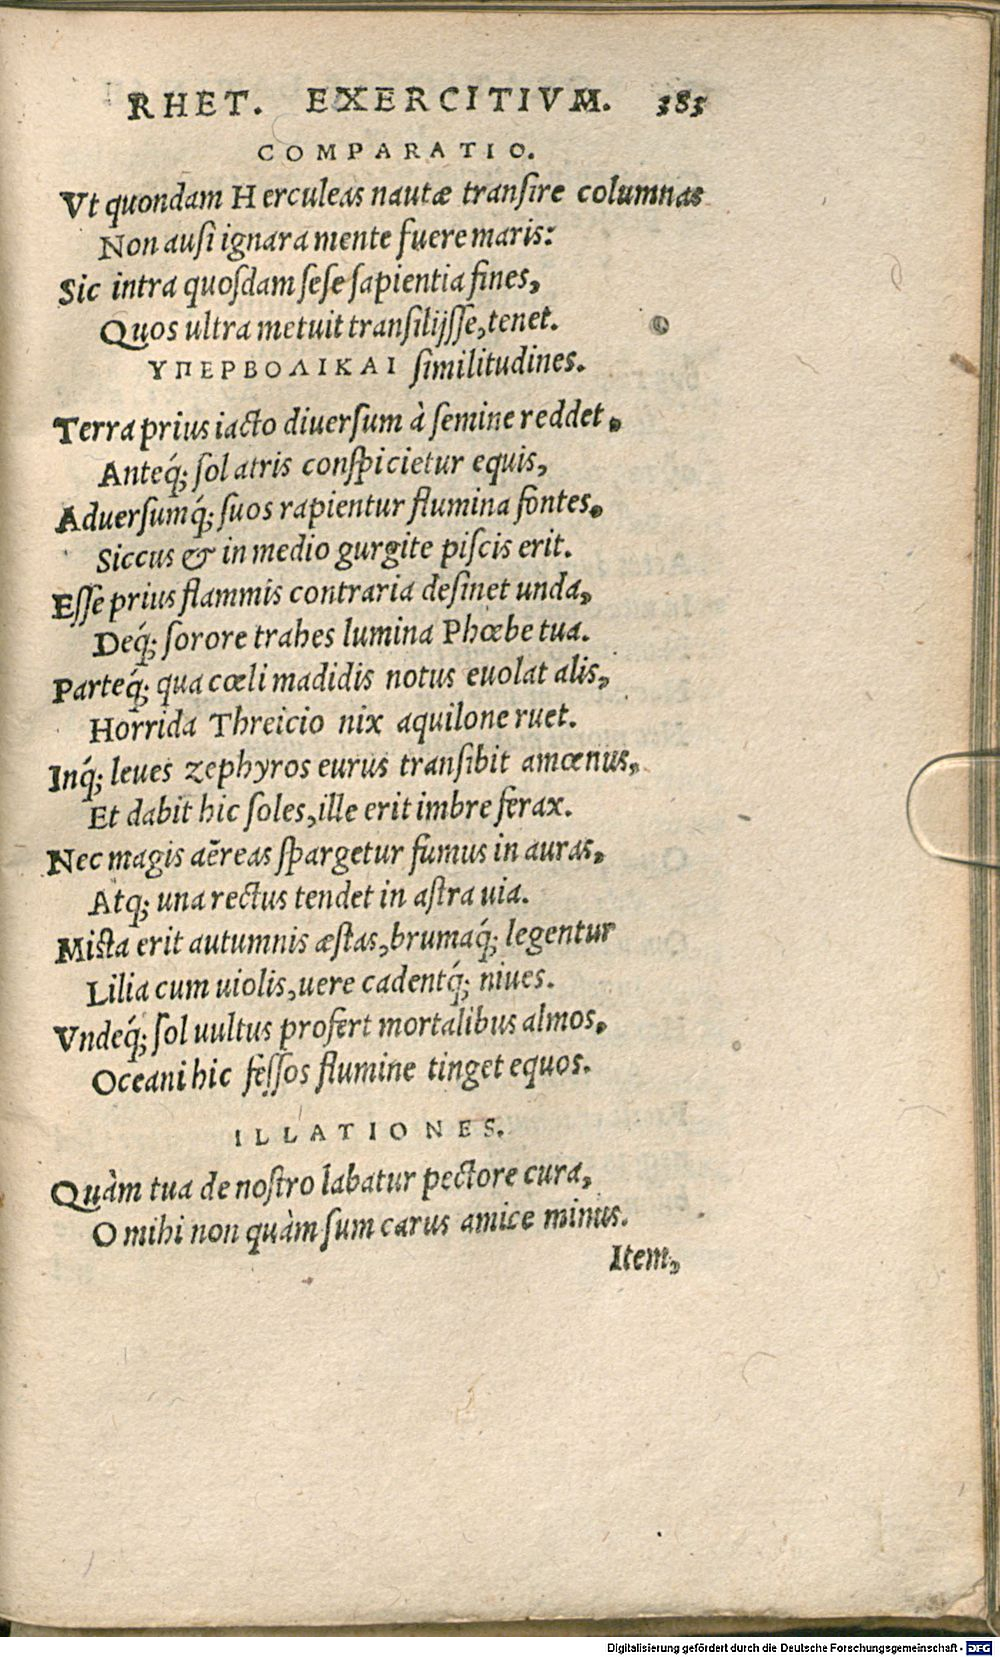 RHET. EXERCITIVM. 383
COMPARATIO.
Vt quondam Herculeas nautæ transire columnas
Non ausi ignara mente fuere maris:
Sic intra quosdam sese sapientia fines,
Quos ultra metuit transilijsse, tenet.
ΥΠΕΡΒΟΛΙΚΑΙ similitudines.
Terra prius iacto diuersum à semine reddet,
Anteq́; sol atris conspicietur equis,
Aduersumq́; suos rapientur flumina fontes,
Siccus & in medio gurgite piscis erit.
Esse prius flammis contraria desinet unda,
Deq́; sorore trahes lumina Phœbe tua.
Parteq́; qua cœli madidis notus euolat alis,
Horrida Threicio nix aquilone ruet.
Inq́; leues zephyros eurus transibit amœnus,
Et dabit hic soles, ille erit imbre ferax.
Nec magis aëreas spargetur fumus in auras,
Atq; una rectus tendet in astra uia.
Mista erit autumnis æstas, brumaq́; legentur
Lilia cum uiolis, uere cadentq́; niues.
Vndeq́; sol uultus profert mortalibus almos,
Oceani hic fessos flumine tinget equos.
ILLATIONES.
Quàm tua de nostro labatur pectore cura,
O mihi non quàm sum carus amice minus.
Item,
Digitalisierung gefördert durch die Deutsche Forschungsgemeinschaft - DFG